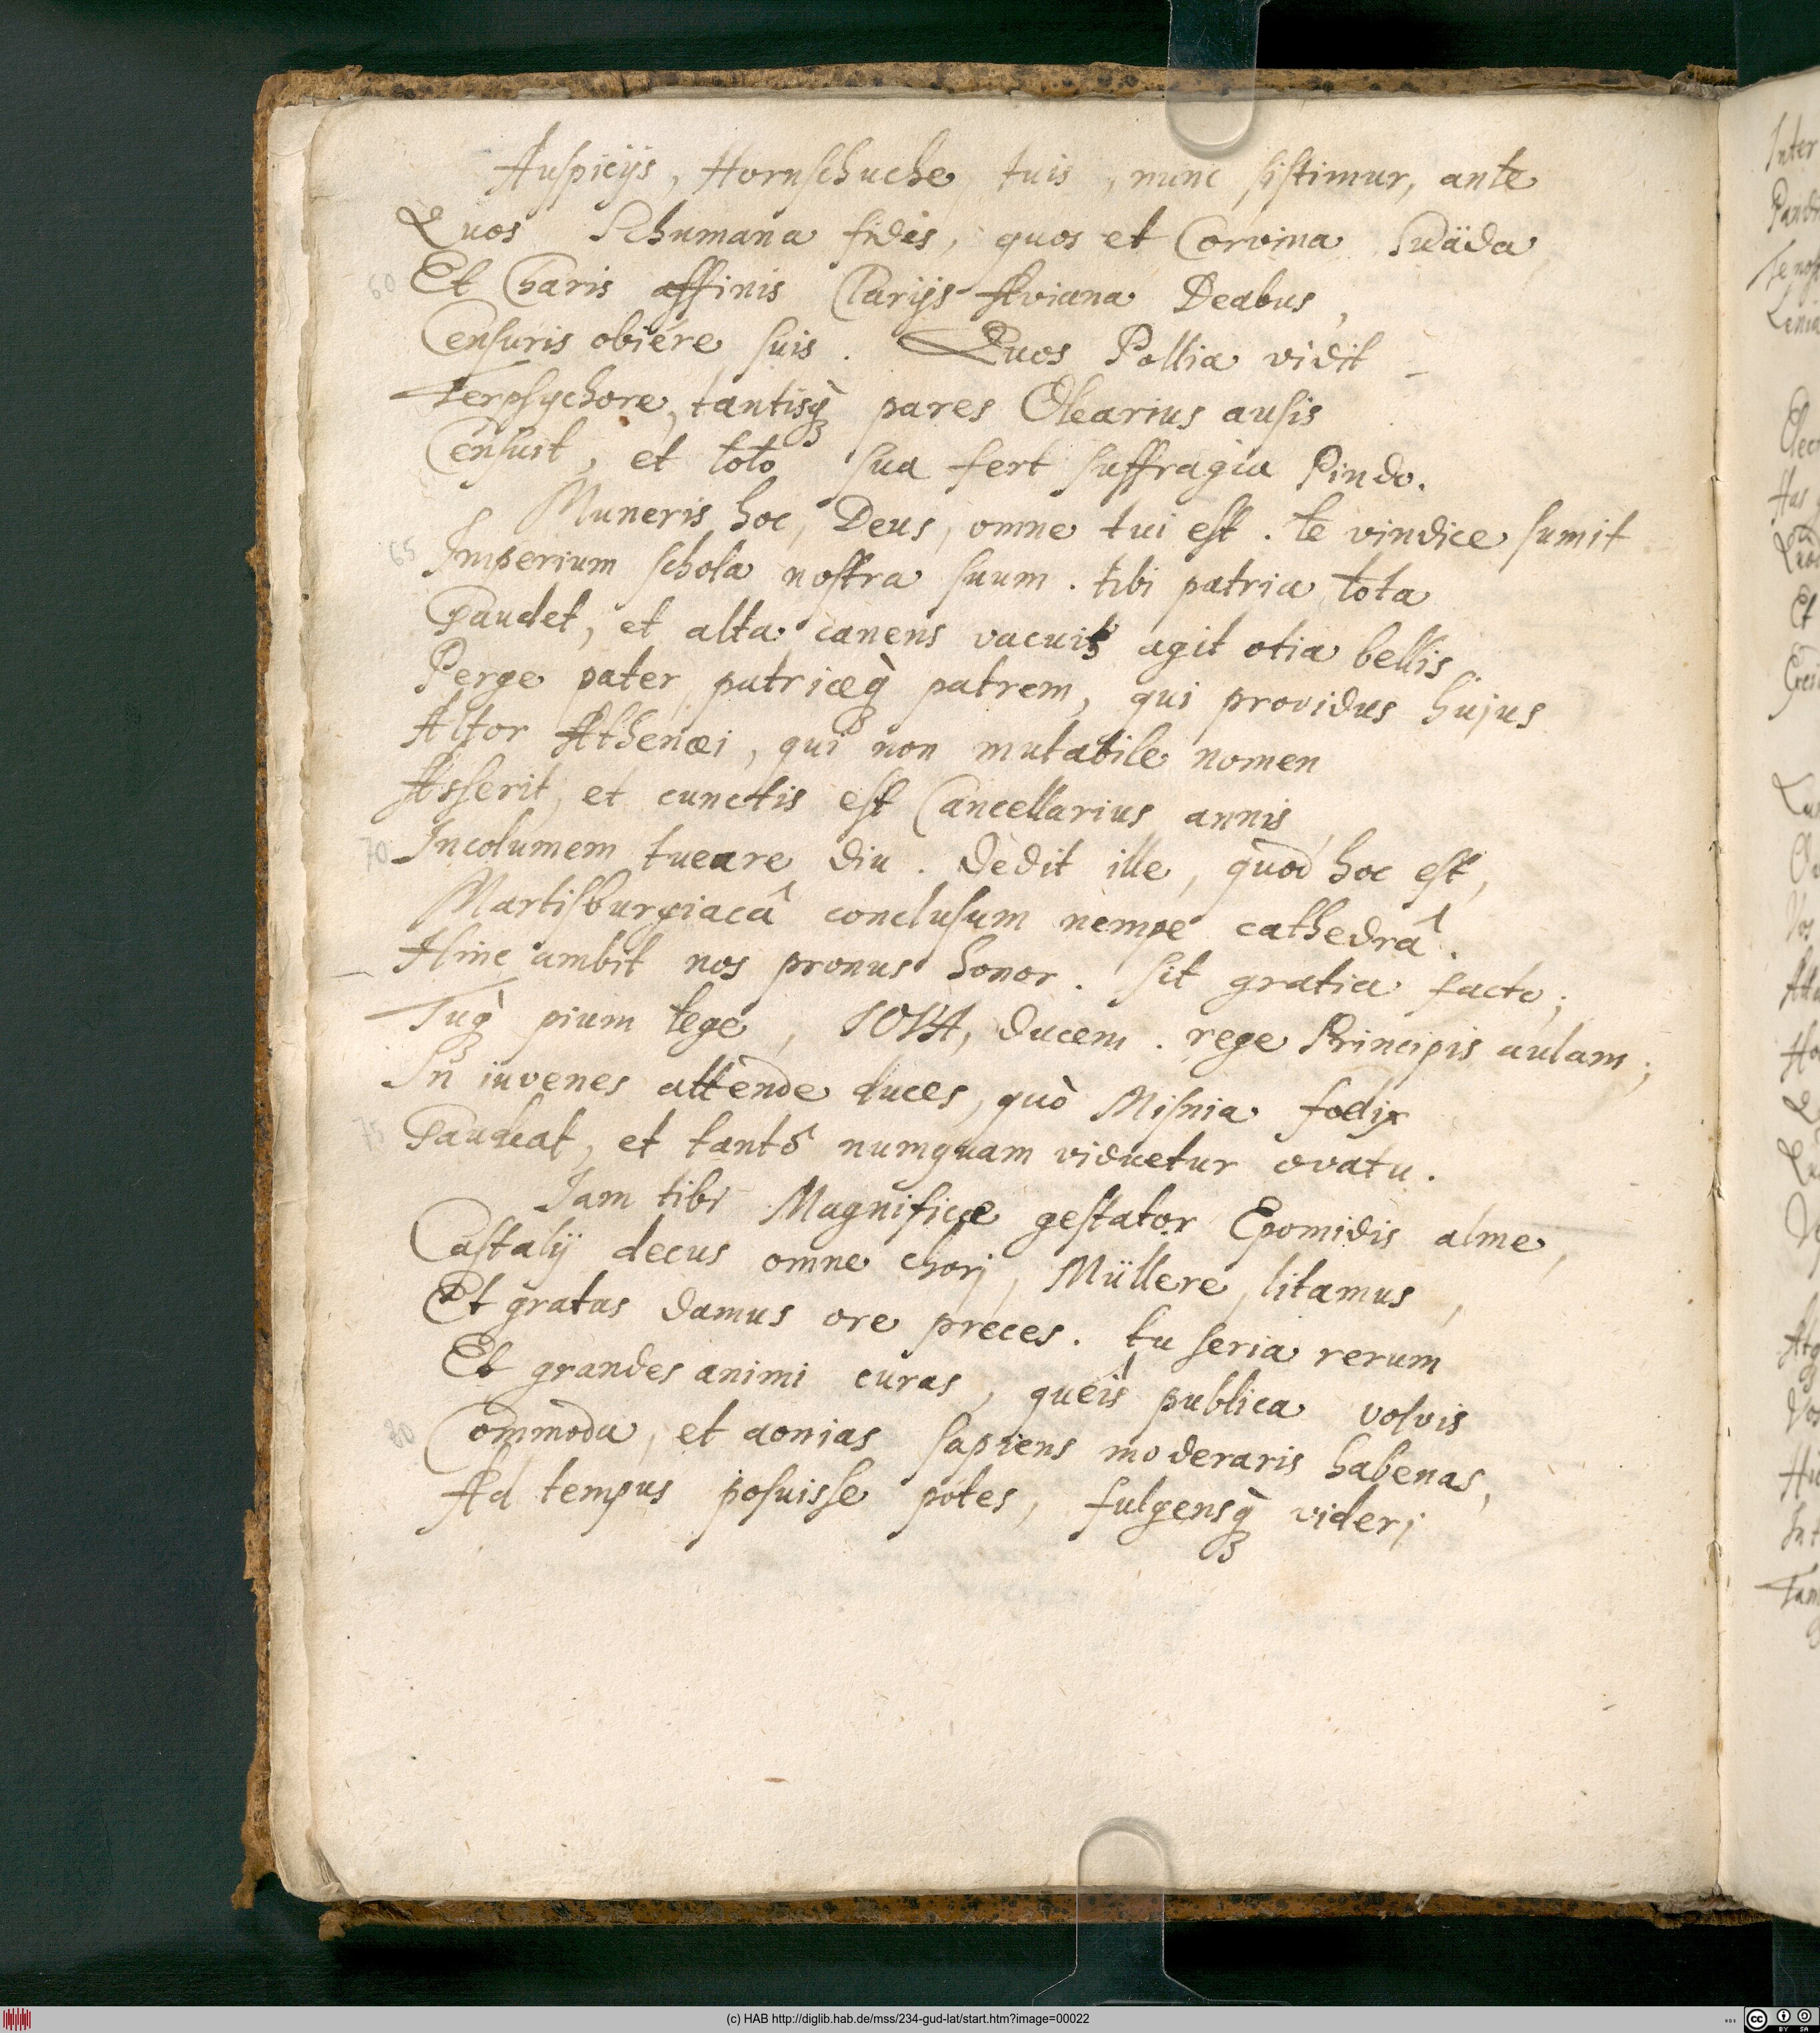 Auspicijs, Hornschuche, tuis, nunc sistimur, ante
Quos Schumana fides, quos et Corvina Suäda
60 Et Charis affinis Clarijs Aviana Deabus,
Censuris obiére suis. Quos Pollia vidit
Terpsychore, tantisq́ꝫ pares Olearius ausis
Censuit, et toto sua fert suffragia Pindo.
Muneris hoc, Deus, omne tui est. te vindice sumit
65 Imperium schola nostra suum. tibi patria tota
Gaudet, et alta canens vacuis agit otia bellis
Perge pater, patriæq́ꝫ patrem, qui providus hujus
Altor Athenæi, qui non mutabile nomen
Asserit, et cunctis est Cancellarius annis
70 Incolumem tueare diu. Dedit ille, quod hoc est,
Martisburgiacâ conclusum nempe cathedrâ.
Hinc ambit nos pronus honor. sit gratia facto;
Tuq́ꝫ pium tege, IOVA, ducem. rege Principis aulam;
In iuvenes attende duces, quò Misnia fœlix
75 Gaudeat, et tantô numquam viduetur ovatu.
Iam tibi Magnificæ gestator Epomidis alme,
Castalij decus omne chorj, Müllere, litamus,
Et gratas damus ore preces. tu seria rerum
Et grandes animi curas, queîs publica volvis
80 Commoda, et aonias sapiens moderaris habenas,
Ad tempus posuisse potes, fulgensq́ꝫ viderj
(c) HAB http://diglib.hab.de/mss/234-gud-lat/start.htm?image=00022